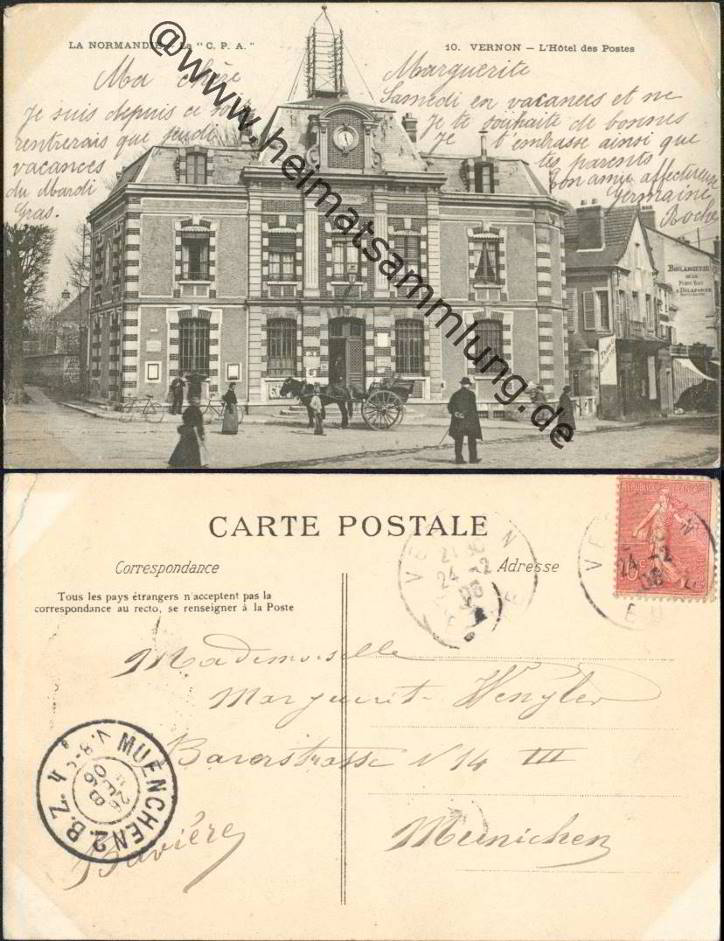 LA NORMANDIE La "C. P. A."
10. VERNON — L'Hôtel des Postes
Ma chère Marguerite
Je suis depuis ce Samedi en vacances et ne
rentrerais que jeudi Je te souhaite de bonnes
vacances Je t'embrasse ainsi que
du Mardi tes parents
Gras. Ton amie affectueuse
Germaine
Roche
@www.heimatsammlung.de
BOULANGERIE
CARTE POSTALE
Correspondance
Adresse
Tous les pays étrangers n'acceptent pas la
correspondance au recto, se renseigner à la Poste
VERNON
24 -2
06
EURE
Mademoiselle
Marguerite Wengler
Barerstrasse N 14 III
Munichen
Bavière
MUENCHEN 2 B.Z. 4